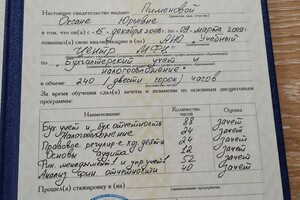 Настоящее свидетельство выдано Пименовой
Оксане Юрьевне
в том, что он(а) с «15» декабря 2008 г. по «09» марта 2009 г.
повышал(а) свою квалификацию в (на) АНО „Учебный
Центр „МФЦ"
по „Бухгалтерский учет и
налогообложение"
в объеме 240 (двести сорок) часов
За время обучения сдал(а) зачеты и экзамены по основным дисциплинам
программы:
Наименование Количество часов Оценка
Бух. учет и бух. отчетность 88 зачет
Налогообложение 24 зачет
Правовое регулир-е хоз. деят-ти 24 зачет
Основы аудита 12 зачет
Фин. менеджмент и упр. учет 52 зачет
Анализ фин. отчетности 40 зачет
Прошел(а) стажировку в (на)